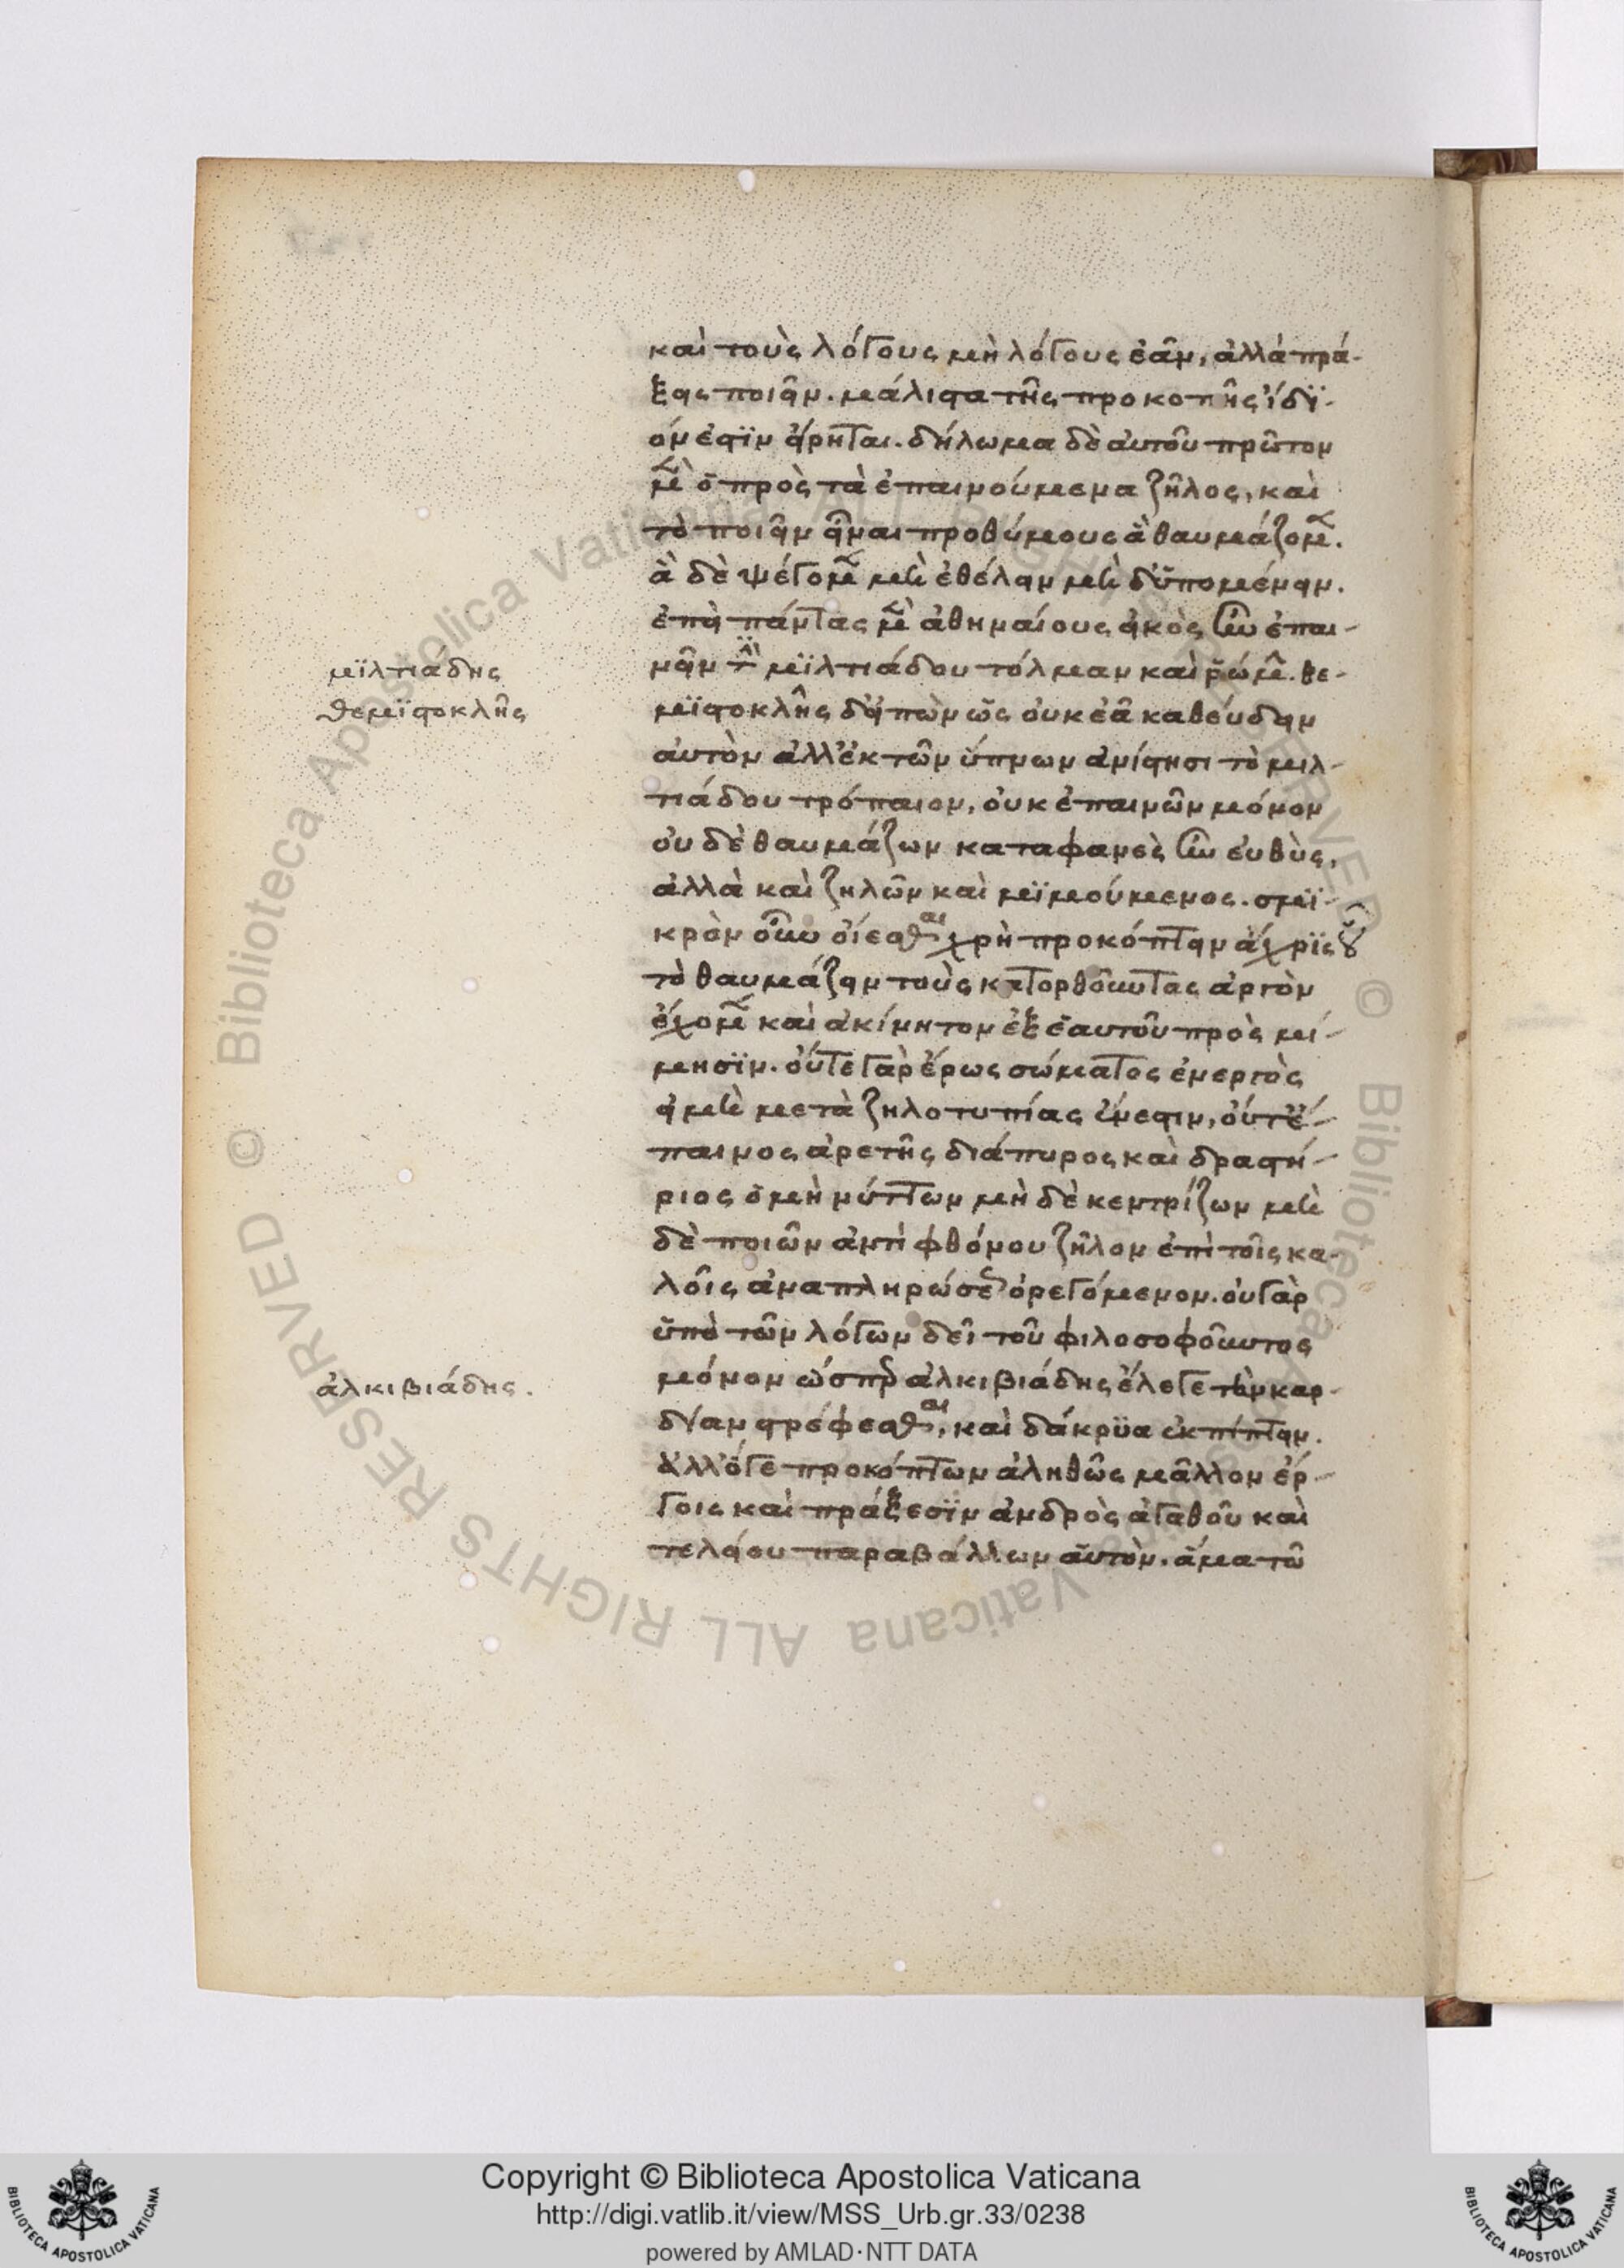 καὶ τοὺς λόγους μὴ λόγους ἐᾶν, ἀλλὰ πρά-
ξεις ποιεῖν. μάλιστα τῆς προκοπῆς ἴδϊ-
όν ἐστϊν εἴρηται. δήλωμα δὲ αὐτοῦ πρῶτον
μὲ ὁ πρὸς τὰ ἐπαινούμενα ζῆλος, καὶ
τὸ ποιεῖν εἶναι προθύμους ἃ θαυμάζομε.
ἃ δὲ ψέγομε μὴ ἐθέλειν μὴ δ' ὑπομένειν.
ἐπεὶ πάντας μὲ ἀθηναίους εἰκὸς ἦν ἐπαι-
νεῖν τὴν μϊλτιάδου τόλμαν καὶ ῥώμη. θε-
μϊστοκλῆς δ' εἰπὼν ὡς οὐκ ἐᾶ καθεύδειν
αὐτὸν ἀλλ' ἐκ τῶν ὕπνων ἀνίστησι τὸ μιλ-
τιάδου τρόπαιον, οὐκ ἐπαινῶν μόνον
οὐ δὲ θαυμάζων καταφανὲς ἦν εὐθὺς,
ἀλλὰ καὶ ζηλῶν καὶ μϊμούμενος. σμϊ-
κρὸν οὖν οἴεσθαι χρὴ προκόπτειν ἄχρϊς οὗ
τὸ θαυμάζειν τοὺς κατορθοῦντας ἀργὸν
ἔχομε καὶ ἀκίνητον ἐξ ἑαυτοῦ πρὸς μί-
μησϊν. οὔτε γὰρ ἔρως σώματος ἐνεργὸς
εἰ μὴ μετὰ ζηλοτυπίας ἔνεστιν, οὔτ' ἔ-
παινος ἀρετῆς διάπυρος καὶ δραστή-
ριος ὁ μὴ νύττων μὴ δὲ κεντρίζων μὴ
δὲ ποιῶν ἀντὶ φθόνου ζῆλον ἐπὶ τοῖς κα-
λοῖς ἀναπληρώσεως ὀρεγόμενον. οὐ γὰρ
ὑπὸ τῶν λόγων δεῖ τοῦ φιλοσοφοῦντος
μόνον ὥσπερ ἀλκιβιάδης ἔλεγε τὴν καρ-
δίαν στρέφεσθαι, καὶ δάκρϋα ἐκπίπτειν.
ἀλλ' ὅγε προκόπτων ἀληθῶς μᾶλλον ἔρ-
γοις καὶ πράξεσϊν ἀνδρὸς ἀγαθοῦ καὶ
τελείου παραβάλλων αὑτὸν. ἅμα τῶ
μϊλτιάδης
θεμϊστοκλῆς
ἀλκιβιάδης.
Copyright © Biblioteca Apostolica Vaticana
http://digi.vatlib.it/view/MSS_Urb.gr.33/0238
powered by AMLAD·NTT DATA
© Biblioteca Apostolica Vaticana ALL RIGHTS RESERVED © Biblioteca Apostolica Vaticana ALL RIGHTS RESERVED
BIBLIOTECA APOSTOLICA VATICANA
BIBLIOTECA APOSTOLICA VATICANA